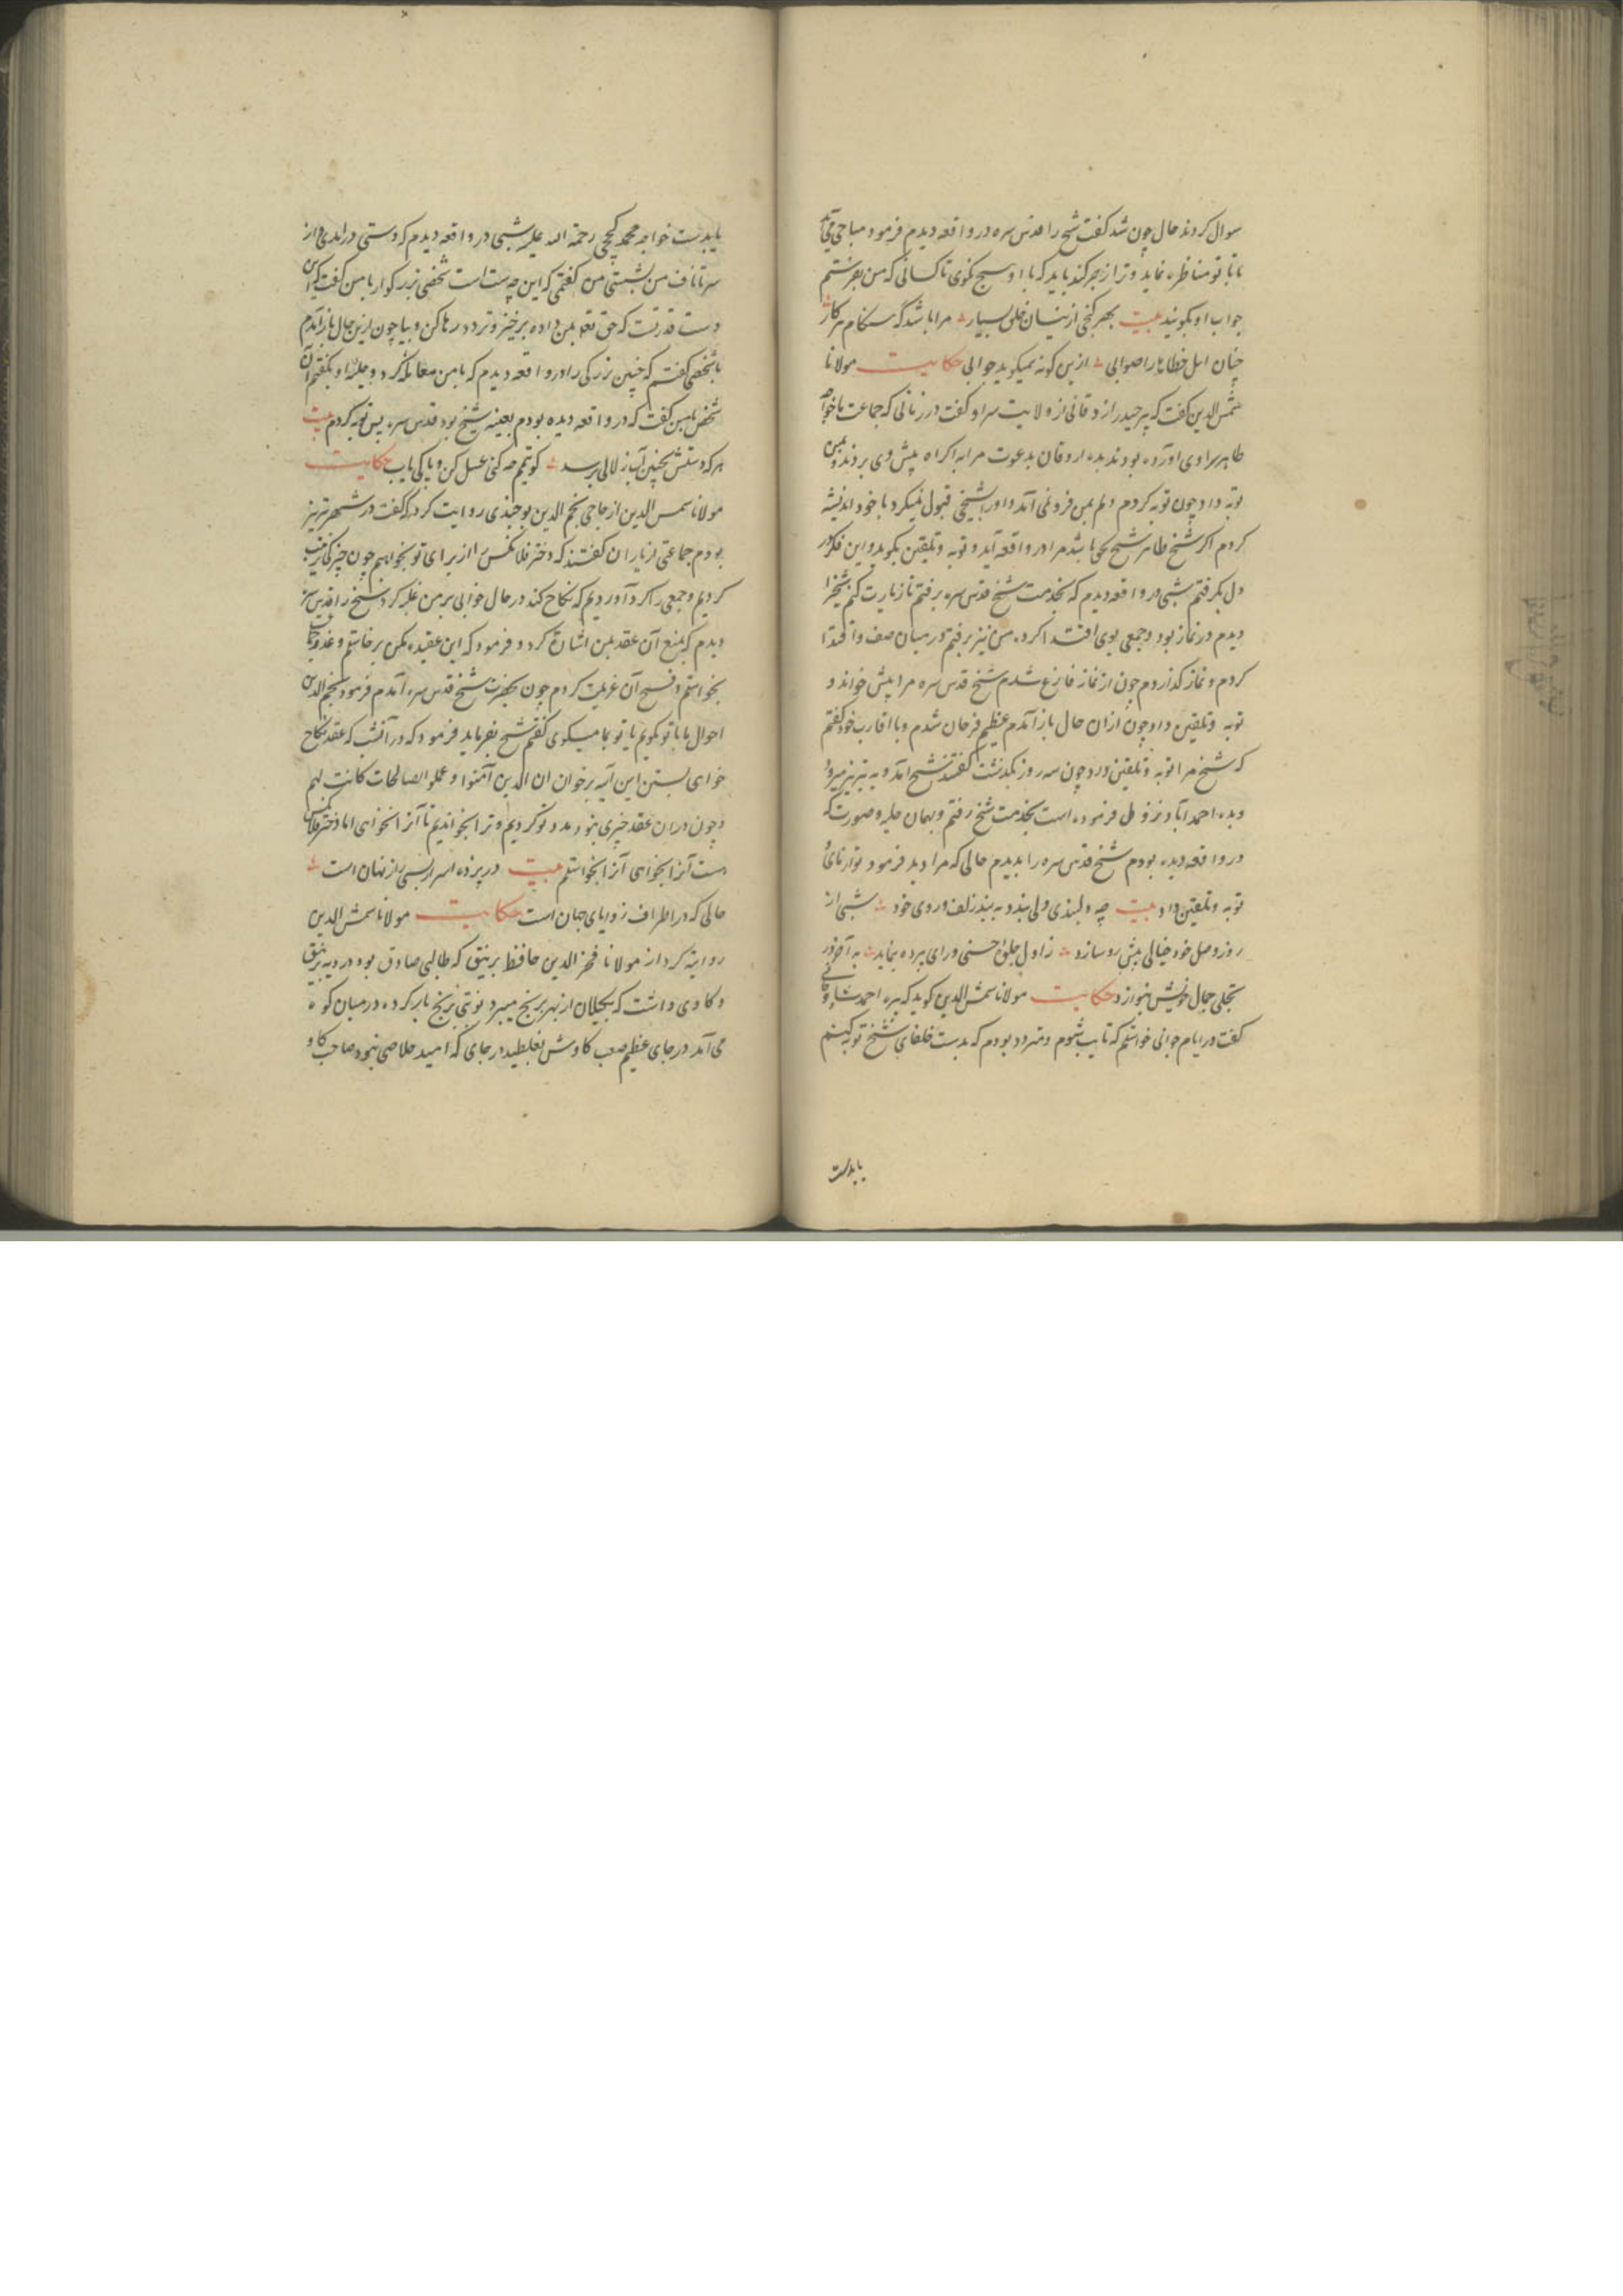 سوال کردند حال چون شد گفت شیخ را قدس سره در واقعه دیدم فرمود مباحی می‌آید
تا با تو مناظره نماید و ترا زجر کند باید که با او هیچ نگوی تا کسانی که من بفرستم
جواب او بگویند بیت بهر کنجی ازینسان خلق بسیار مرا باشد که هنگام سر کار
چنان اهل خطا را صوابی ازین گونه همیگوید جوابی حکایت مولانا
شمس الدین گفت که پیر حیدر از ولایت سراو گفت در زمانی که جماعت با خواجه
طاهر سراوی آورده بودند بدیه اروقان بدعوت مرا به اکراه پیش وی بردند و بمن
توبه داد چون توبه کردم دلم بمن فرو نمی آمد و او را بشیخی قبول نمیکرد با خود اندیشه
کردم اگر شیخ طاهر شیخ بحق باشد مرا در واقعه آید و توبه و تلقین بگوید و این فکر در
دل بگرفتم شبی در واقعه دیدم که بخدمت شیخ قدس سره برفتم تا زیارت کنم شیخ را
دیدم در نماز بود و جمعی بوی اقتدا کرده من نیز برفتم و در میان صف واقتدا
کردم و نماز گذاردم چون از نماز فارغ شدم شیخ قدس سره مرا پیش خواند و
توبه و تلقین داد چون ازان حال باز آمدم عظیم فرحان شدم و با اقارب خود گفتم
که شیخ مرا توبه و تلقین داد چون سه روز بگذشت گفتند شیخ آمد و به تبریز میرود
و بدیه احمد آباد نزول فرموده است بخدمت شیخ رفتم و بهمان حلیه و صورت که
در واقعه دیده بودم شیخ قدس سره را بدیدم حالی که مرا دید فرمود
توبه و تلقین داد بیت چه دلبندی دلی بندد به بند زلف و روی خود شبی از
روز وصل خود خیالی پیش رو سازد ز اول جلوه حسنی ورای پرده بنماید به آخر در
تجلی جمال خویش بنوازد حکایت مولانا شمس الدین گوید که پیره احمد
گفت در ایام جوانی خواستم که تایب شوم و متردد بودم که بدست خلفای شیخ توبه کنم
یا بدست
یا بدست خواجه محمد کججی رحمة الله علیه شبی در واقعه دیدم که دستی درآمدی و از
سر تا ناف من بشستی من گفتمی که این چه دست است شخصی بزرگوار با من گفت که این
دست قدرتست که حق تعه بمن داده برخیز و تردد رها کن و بیا چون ازین حال باز آمدم
با شخصی گفتم که چنین بزرگی را در واقعه دیدم که با من معامله کرد و حلیه او بگفتم آن
شخص با من گفت که در واقعه دیده بودم بعینه شیخ بود قدس سره پس توبه کردم بیت
هر که دستش بچنین آب زلالی برسد گو تیمم چه کنی غسل کن و پاکی یاب حکایت
مولانا شمس الدین از حاجی نجم الدین روایت کرد که گفت در شهر تبریز
بودم جماعتی از یاران گفتند که دختر فلانکس را از برای تو بخواهیم چون چیزکی ترتیب
کردیم و جمعی را گرد آوردیم که نکاح کند در حال خوابی بر من غلبه کرد شیخ را قدس سره
دیدم که بمنع آن عقد بمن اشارة کرد و فرمود که این عقد مکن برخاستم و عذر
بخواستم و فسخ آن عزیمت کردم چون بحضرت شیخ قدس سره آمدم فرمود نجم الدین
احوال ما با تو گویم یا تو با ما میگوی گفتم شیخ بفرماید فرمود که در آنشب که عقد نکاح
خواستی بستن این آیه برخوان ان الذین آمنوا و عملو الصالحات کانت لهم
و چون دران عقد خیری نبود مدد تو کردیم و ترا نخواندیم تا آنرا نخواهی اما دختر فلانکس
هست آنرا بخواهی آنرا بخواستم بیت در پرده اسرار بسی راز نهان است
حالی که در اطراف زوایای جهان است حکایت مولانا شمس الدین
روایة کرد از مولانا فخر الدین حافظ برینق که طالبی صادق بود در دیه برینق
و گاوی داشت که بگیلان از بهر برنج میبرد نوبتی برنج بار کرده در میان کوه
می آمد در جای عظیم صعب گاوش بغلطید در جای که امید خلاصی نبود صاحب گاو